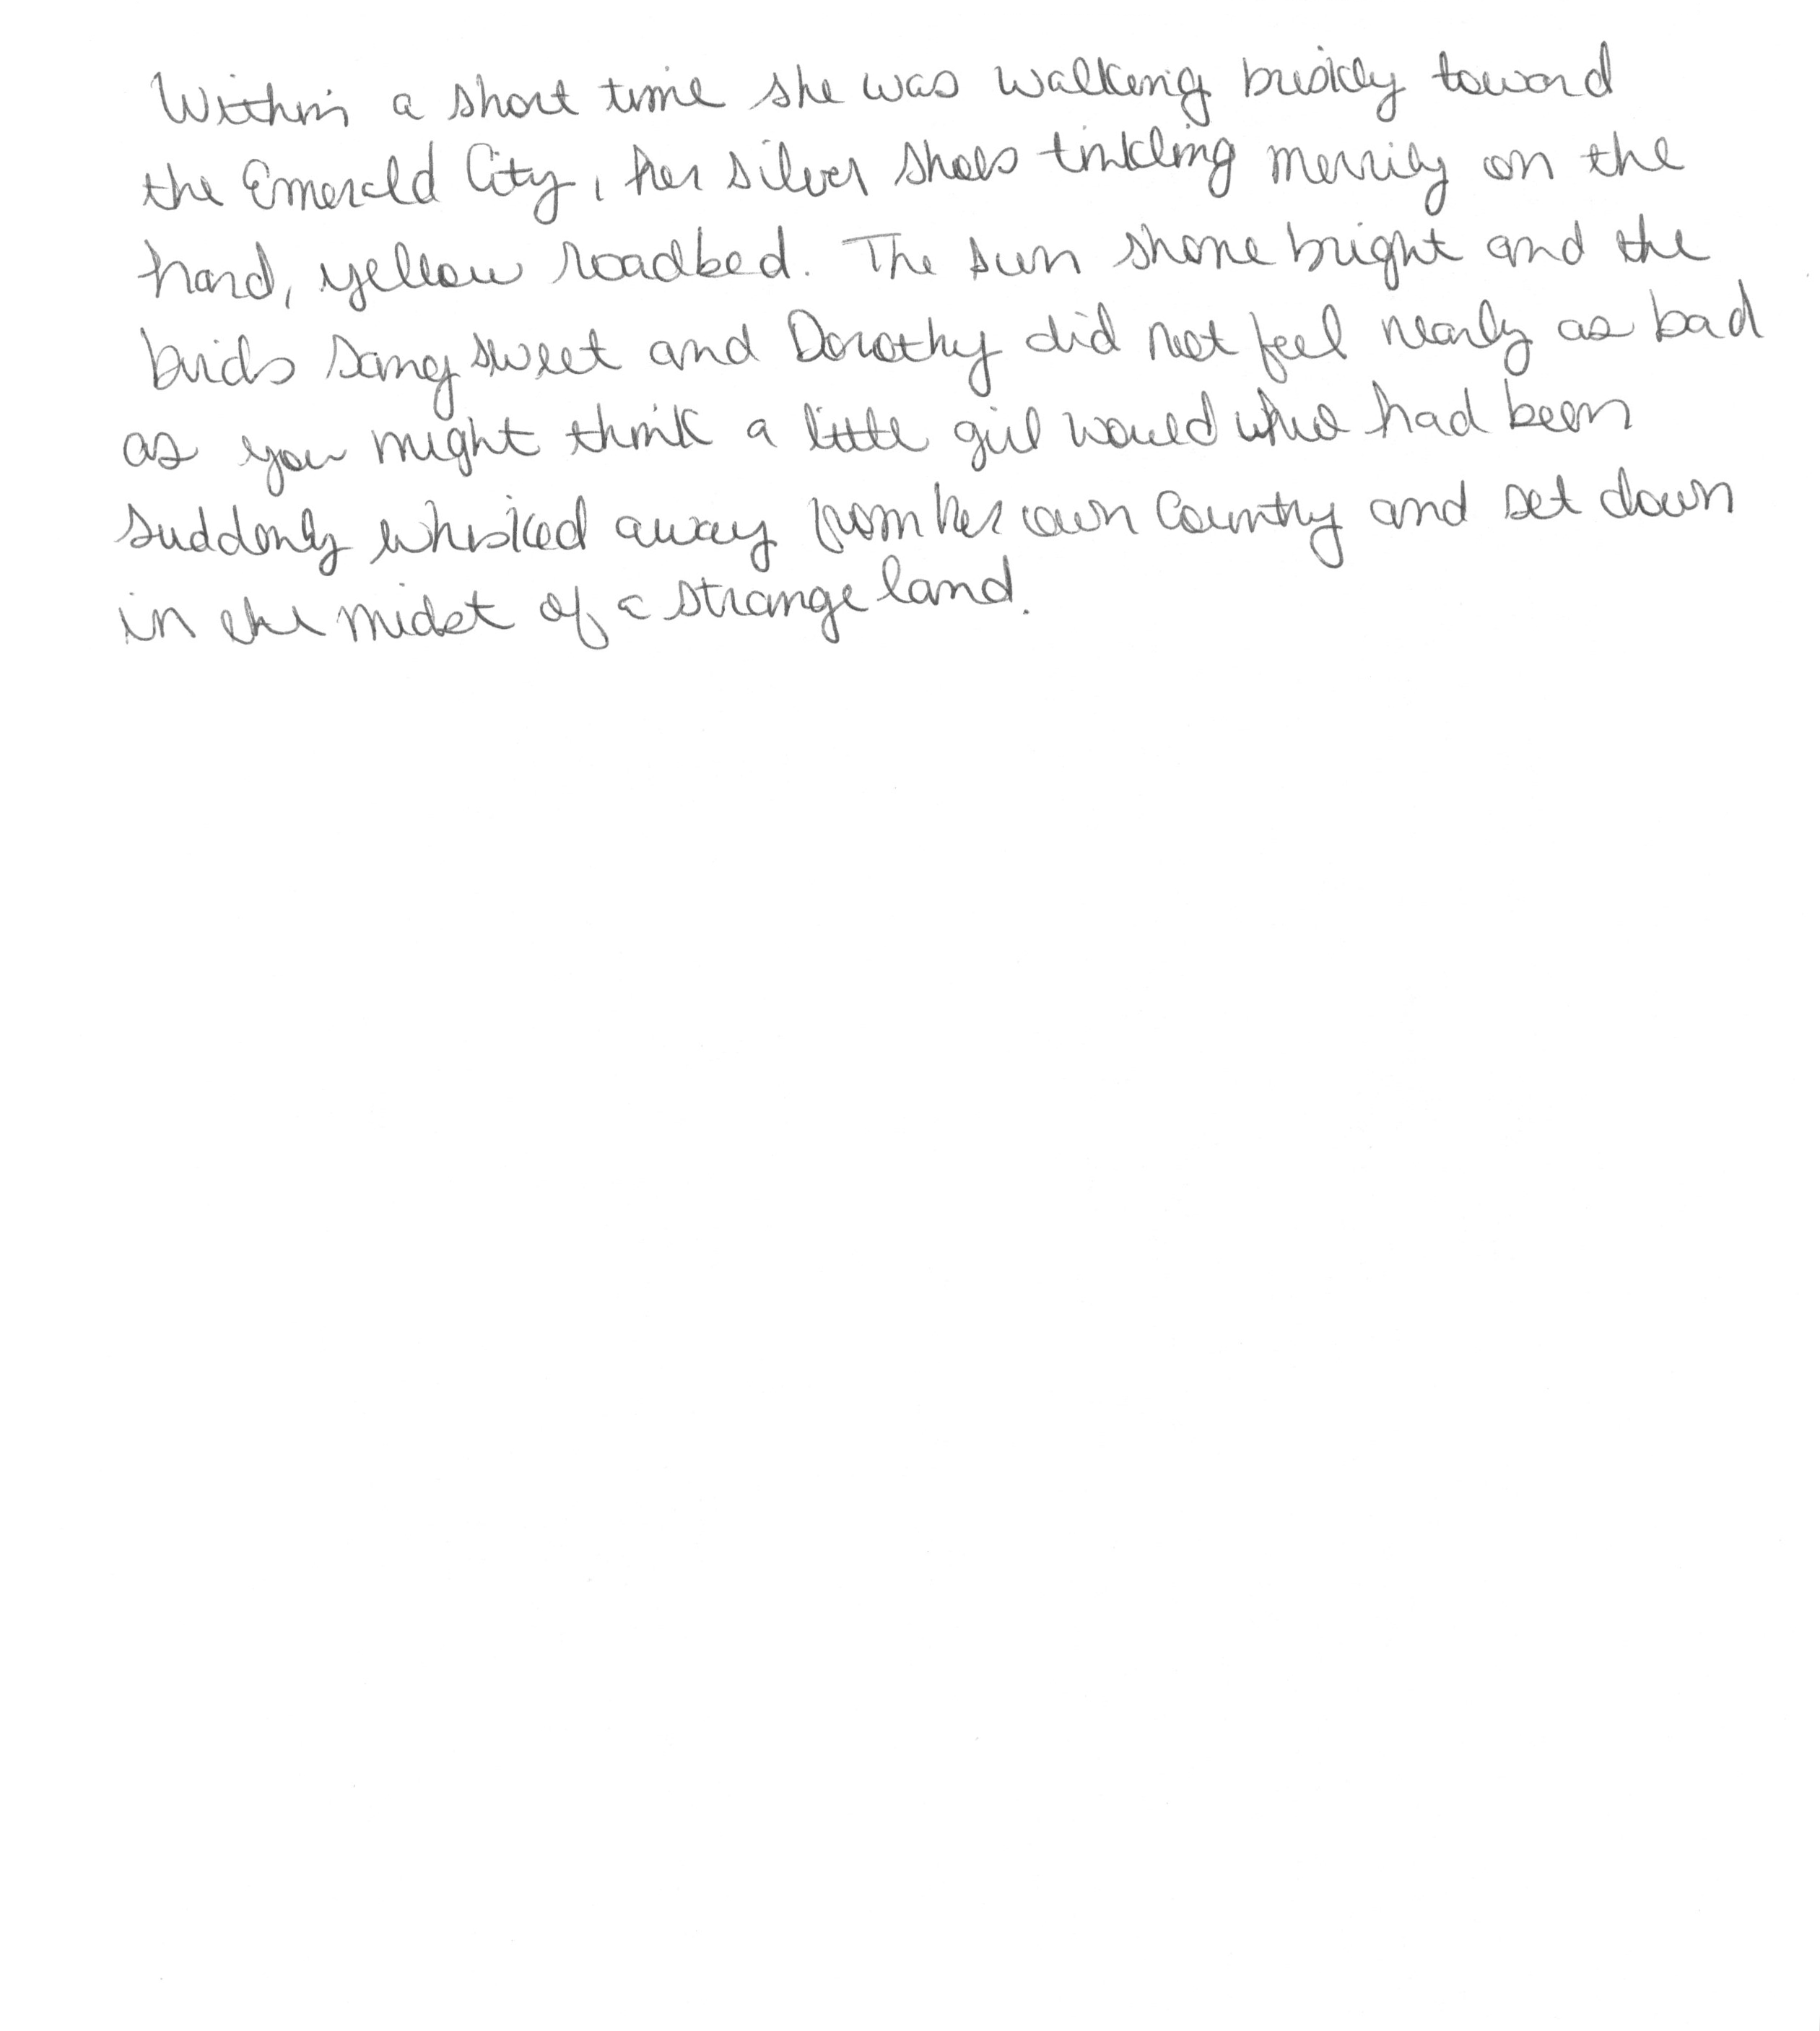 Within a short time she was walking briskly toward
the Emerald City, her silver shoes tinkling merrily on the
hard, yellow roadbed. The sun shone bright and the
birds sang sweet and Dorothy did not feel nearly as bad
as you might think a little girl would who had been
suddenly whisked away from her own country and set down
in the midst of a strange land.